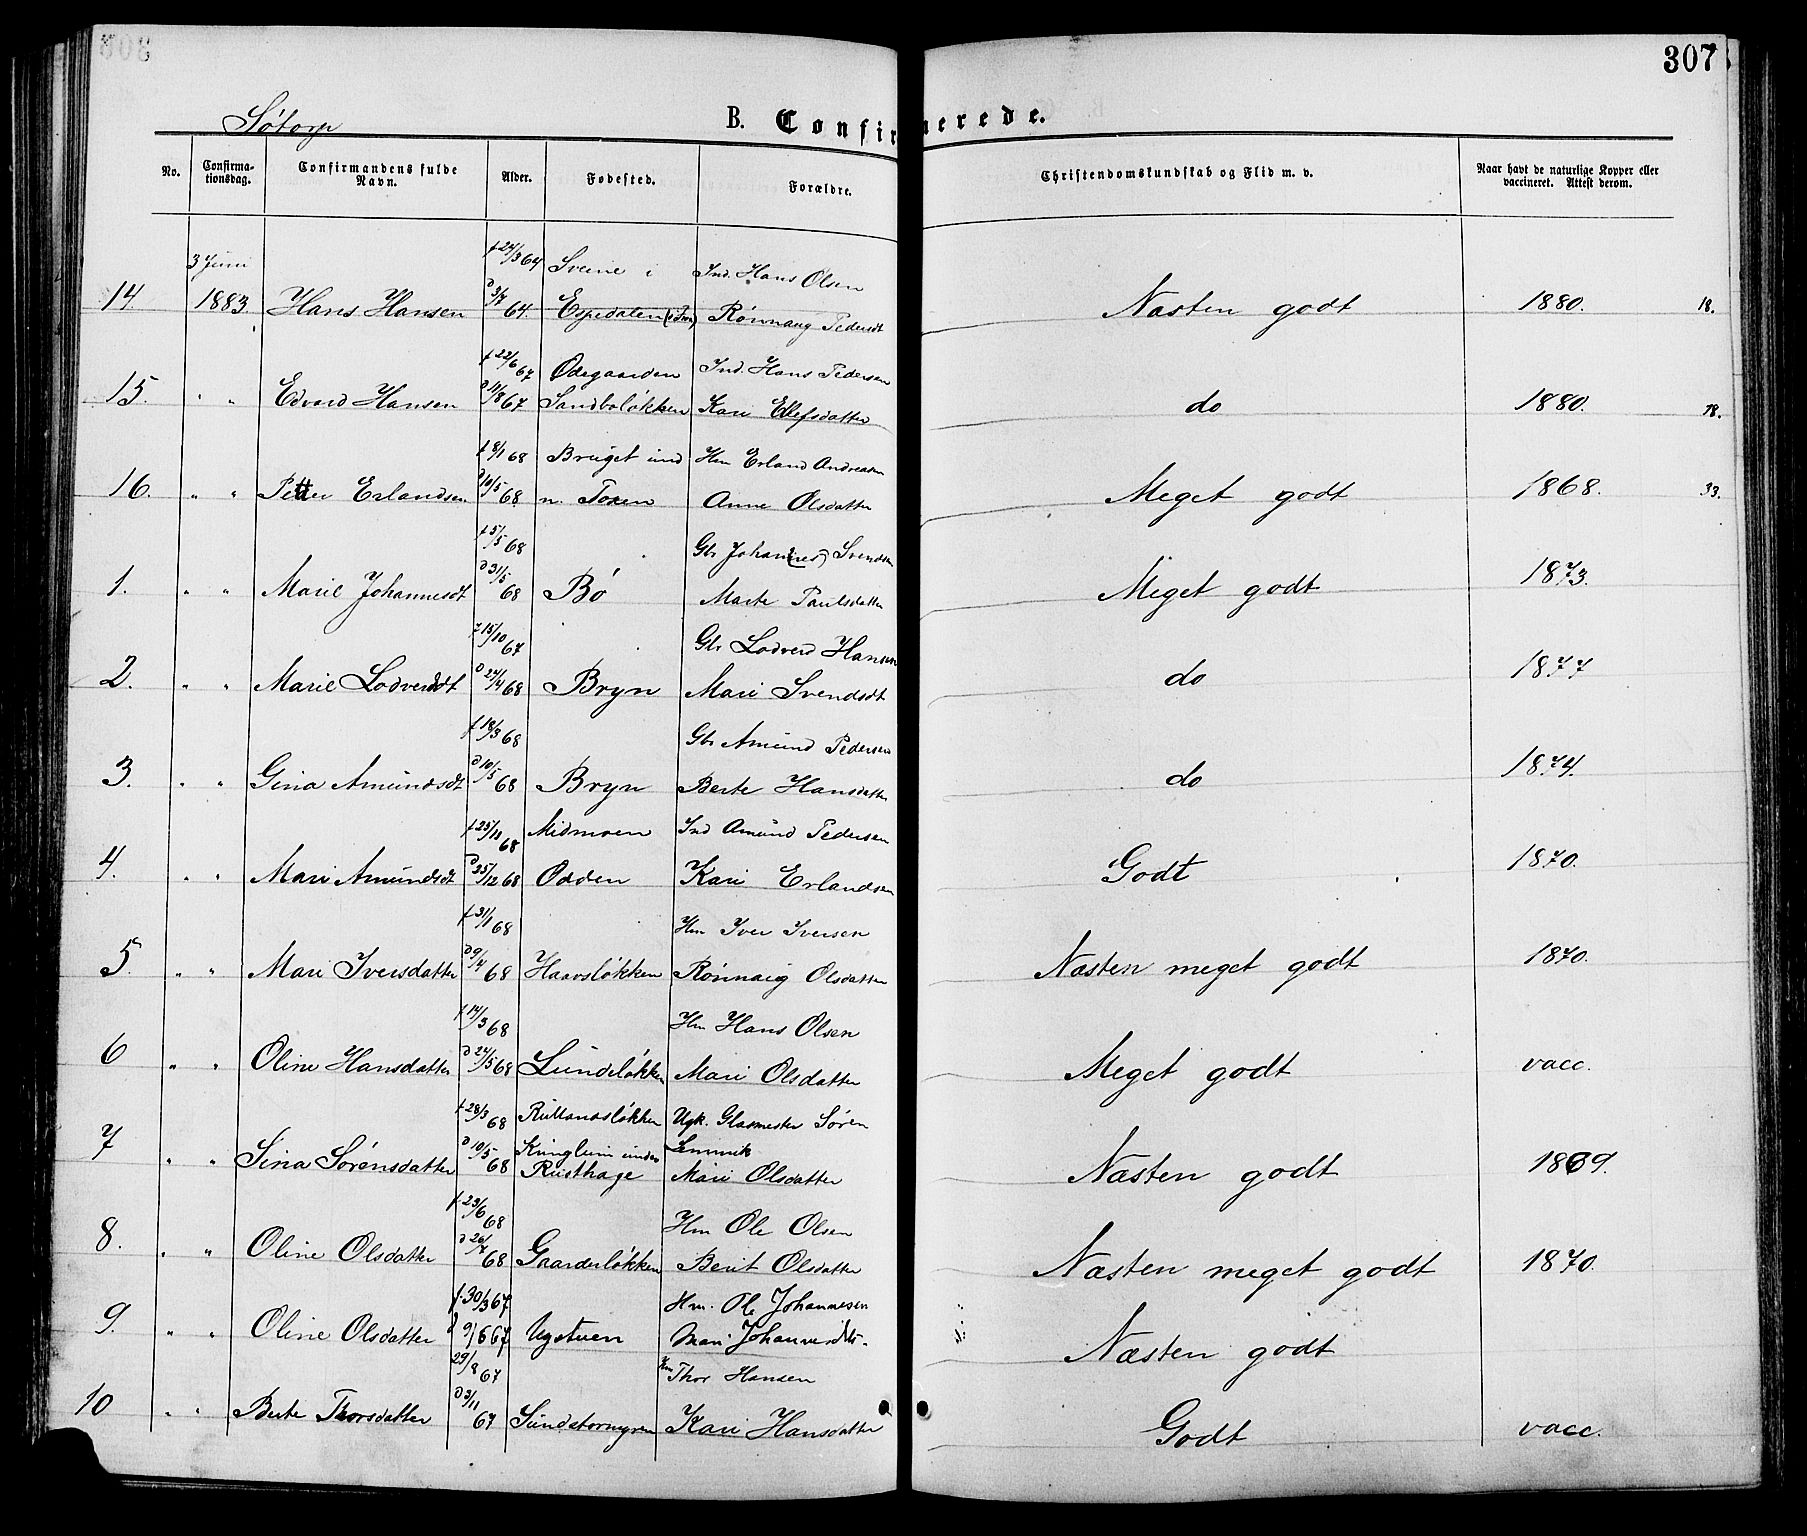 307
Sötorp
B. Confirmerede.
No. Confirmationsdag. Confirmandens fulde Navn. Alder. Fødested. Forældre. Christendomskundskab og Flid m. v. Naar havt de naturlige Kopper eller vaccineret. Attest derom.
3 Juni f 24/3 64 Sveine i Ind. Hans Olsen
14. 1883. Hans Hansen d 3/7 64. Espedalen Rönnaug Pedersdt Næsten godt 1880. 18.
f 22/6 67 Ödegaarden Ind. Hans Pedersen
15. " " Edvard Hansen d 11/8 67 Sandboløkken Kari Ellefsdatter do 1880. 18.
f 8/1 68 Bruget und Hm Erland Andreasen
16. " " Petter Erlandsen d 10/5 68 n. Toxen Anne Olsdatter Meget godt 1868. 33.
f 5/5 68 Gbr Johan(nes) Svendsen
1. " " Marie Johannesdt d 31/5 68 Bö Marte Paulsdatter Meget godt 1873.
f 15/10 67 Gbr Lodverd Hansen
2. " " Marie Lodverddt d 24/4 68 Bryn Mari Svendsdt do 1877
f 18/3 68 Gbr Amund Pedersen
3. " " Gina Amundsdt d 10/5 68 Bryn Berte Hansdatter do 1874.
f 25/11 68 Midmoen Ind Amund Pedersen
4. " " Mari Amundsdt d 25/12 68 Odden Kari Erlandsen Godt 1870.
f 31/1 68 Hm Iver Iversen
5. " " Mari Iversdatter d 9/4 68 Haavsløkken Rönnaug Olsdatter Næsten meget godt 1870.
f 14/3 68 Hm Hans Olsen
6 " " Oline Hansdatter d 24/5 68 Lundeløkken Mari Olsdatter Meget godt vacc.
f 28/3 68 Rullandsløkken Ugk. Glasmester Sören
7 " " Sina Sörensdatter d 10/5 68 Kringlum under Rusthage Mari Olsdatter Næsten godt 1869.
f 23/6 68 Hm Ole Olsen
8. " " Oline Olsdatter d 26/7 68 Gaarderløkken Berit Olsdatter Næsten meget godt 1870.
f 30/3 67 Hm. Ole Johannesen
9. " " Oline Olsdatter d 9/6 67 Nystuen Mari Johannesdtr. Næsten godt
29/8 67 Hm Thor Hansen
10 " " Berte Thorsdatter d 3/11 67 Sundstormyren Kari Hansdatter Godt vacc.